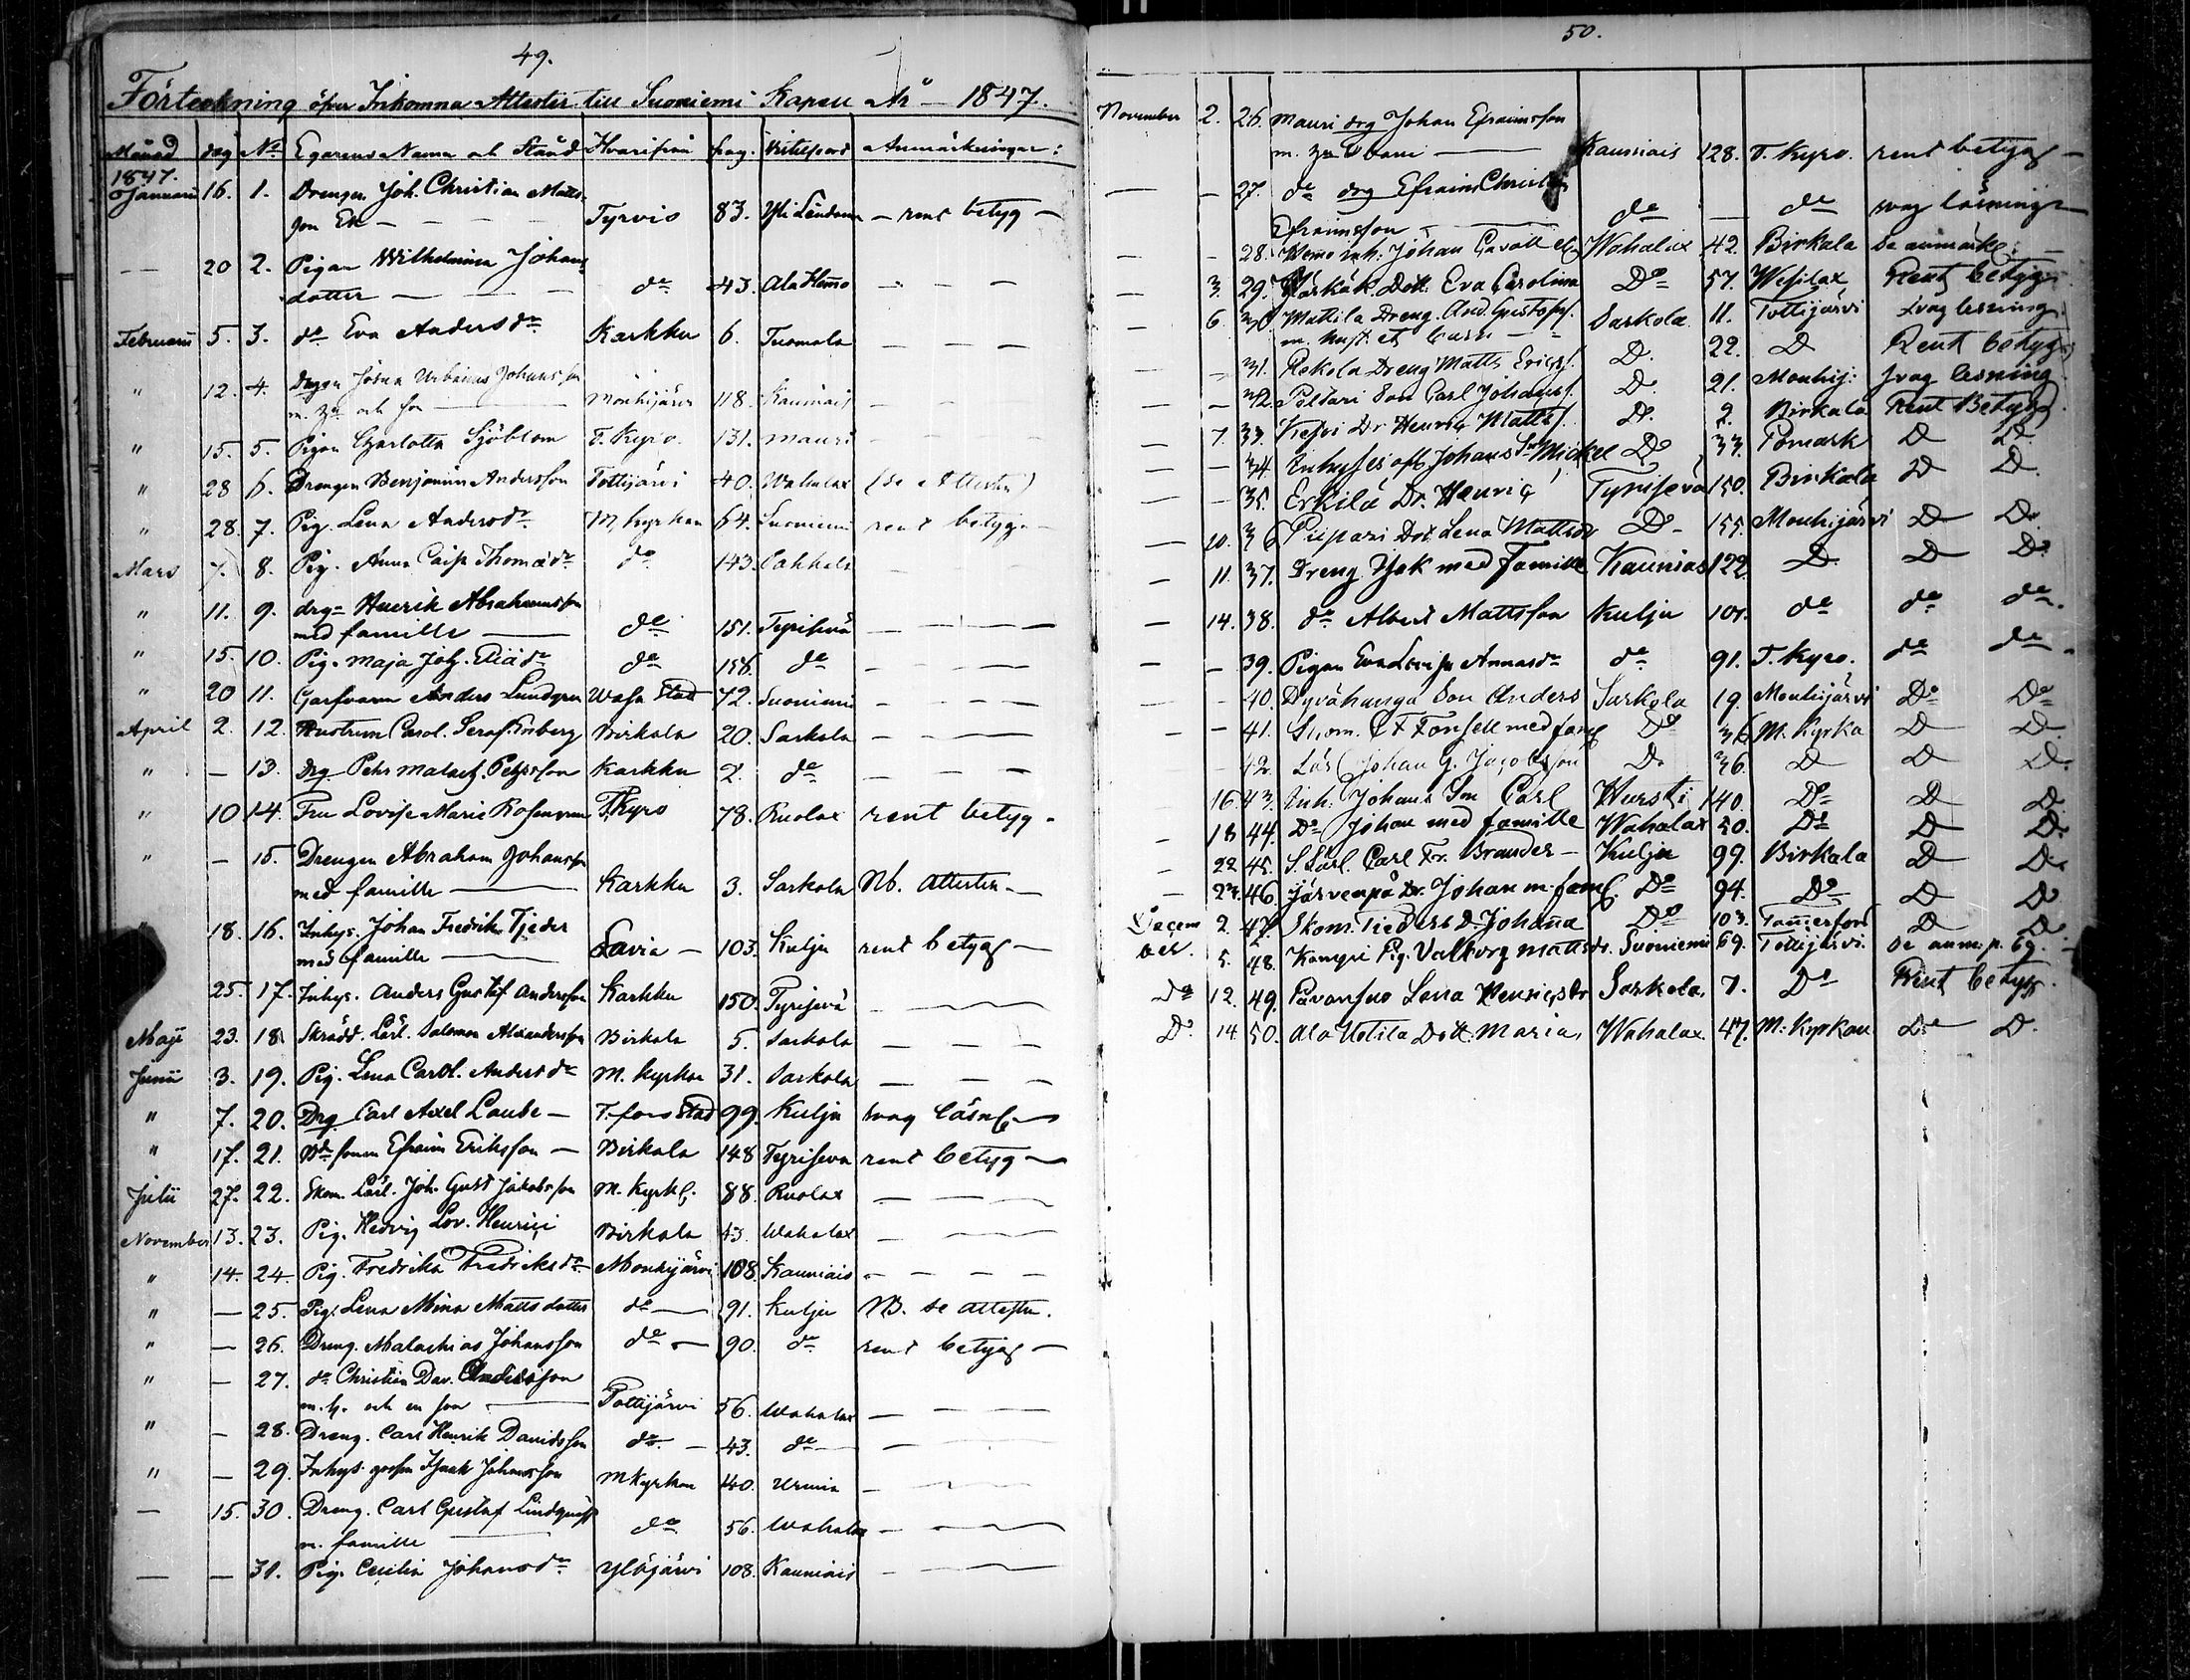 49.
Förteckning öfver Inkomna Attester till Suoniemi Kapell År 1847.
Månad dag No Egarens Namn och Stånd Hvarifrån pag. Anmärkningar:
1847.
Januarii 16. 1. Drengen Joh. Christian Matts-
son Ek Tyrvis 83. rent betyg
20 2. Pigan Wilhelmina Johans
dotter do 43.
Februarii 5. 3. do Eva Anders dr Karkku 6. Tuomola
" 12. 4. Urbanus Johansson
m. och son Mouhijärvi 118. Kauniais
" 15. 5. Pigan Charlotta Sjöblom T. Kyro 131. Mauri
" 28 6. Drengen Benjamin Andersson Tottijärvi 40. Wahalax (se Attesten)
" 28. 7. Pig. Lena Andersdr M, kyrkan 64. Suoniemi rent betyg
Mars 7. 8. Pig. Anna Caisa Thomædr do 143. Pakkala
" 11. 9. drg Henrik Abrahamsson
med famille do 151. Tyrisevä
" 15. 10. Pig. Maja Joh. Eliædr do 158. do
" 20 11. Garfvaren Anders Lundgren Wasa Stad 72. Suoniemi
April 2. 12. Hustrun Carol. Seraf. Birkala 20. Sarkola
" — 13. Drg Pehr Malach. Pehrsson Karkku 2. do
" 10 14. Fru Lovisa Maria T. Kyro 78. Ruolax rent betyg
" — 15. Drengen Abraham Johansson
med famille Karkku 3. Sarkola Nb. Attesten
" 18. 16. Inhys. Johan Fredrik Tjeder
med famille Lavia 103. Kulju rent betyg
25. 17. Inhys. Anders Gustaf Andersson Karkku 150. Tyrisevä
Maji 23. 18 Skrädd. Lärl. Salomon Alexandersson Birkala 5. Sarkola
Junii 3. 19. Pig. Lena Carol. Anders dr M. kyrkan 31. Sarkola
" 7. 20. Drg Carl Axel Laube T. fors Stad 99. Kulju svag läsn.
" 17. 21. Bdesonen Efraim Eriksson Birkala 148 Tyriseva rent betyg
Julii 27. 22. Skom. Lärl. Joh. Gust Jakobsson M. Kyrk. 88. Ruolax
November 13. 23. Pig. Hedvig Lov. Henrici Birkala 43 Wahalax
" 14. 24 Pig. Fredrika Fredriksdr Mouhijärvi 108. Kauniais
" — 25. Pig. Lena Mina Matts dotter do 91. Kulju NB. se attesten.
" — 26. Dreng. Malachias Johansson do 90. do rent betyg
" — 27. do Christian Dav. Andersson
m. h. och en son Tottijärvi 56. Wahalax
" — 28. Dreng. Carl Henrik Davidsson do 43. do
" — 29. Inhys. gossen Isaak Johansson M kyrkan 40. Urmia
— 15. 30. Dreng. Carl Gustaf Lindqvist
m. famille do 56. Wahalax
— — 31. Pig. Cecilia Johansdr Ylöjärvi 108. Kauniais
50.
November 2. 26. Mauri drg Johan Efraimsson
m. barn Kauniais 128. T. Kyro. rent betyg
— — 27. do drg Efraim Christian
Efraimsson do — do svag läsning
— — 28. Inh. Johan Wahalax 42. Birkala se anmärk:
— 3. 29. Dott. Eva Carolina Do 57. Wesilax Rent betyg
— 6. 30. Mattila Dreng. And. Gustafss.
m. hust. et barn Sarkola 11. Tottijärvi Svag lesning
— 31. Rekola Dreng Matts Ericss. D. 22. D Rent betyg
— 32. Son Carl Johanss. D. 21. Mouhij: svag lesning
— 7. 33. Dr Henric Mattss. D. 2. Birkala Rent Betyg
— — 34. Inhyses oft. Johans Son Mickel Do 33. Pomark D D.
— — 35. Erkilä Dr. Henric Tyrisevä 150. Birkala D D.
— 10. 36 Piipari Dot. Lena Mattsdr Do 155. Mouhijärvi D Do
— 11. 37. Dreng Isak med famille Kaunias 122 D D Do
— 14. 38. do Albert Mattsson Kulju 101. do do do.
— — 39. Pigan Eva Lovisa Annasdr do 91. T. Kyro. do do
— 40. Son Anders Sarkola 19. Mouhijärvi Do Do
— — 41. C F Fonsell med fam. Do 36 M. Kyrka D D.
42. Lärl Johan G. Jacobsson D. 36. D D D.
16 43. Inh. Johans Son Carl Hursti 140. Do D D
— 18 44. Do Johan med famille Wahalax 50. Do D D.
— 22 45. S. Lärl. Carl Fr. Brander Kulju 99. Birkala D D.
— 24. 46. Järvenpä Dr. Johan m. fam. Do 94. Do D D
Decem 2. 47. Skom. Tieders D. Johanna Do 103. Tammerfors D D
ber. 5. 48. Pig. Valborg Mattsdr. Suoniemi 69. Tottijärvi. se anm: p. 69.
Do 12. 49. Lena Henricsdr Sarkola. 7. Do Rent betyg.
D. 14 50. Ala Uotila Dott. Maria, Wahalax. 47. M: Kyrkan Do D.